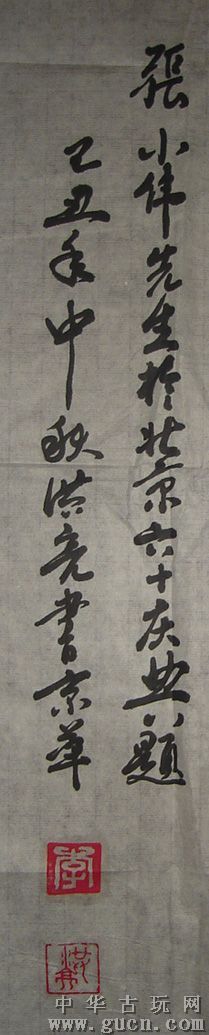 張小伟先生於北京六十庆典题
己丑年中秋洪亮书京华
李
洪亮
中华古玩网
www.gucn.com